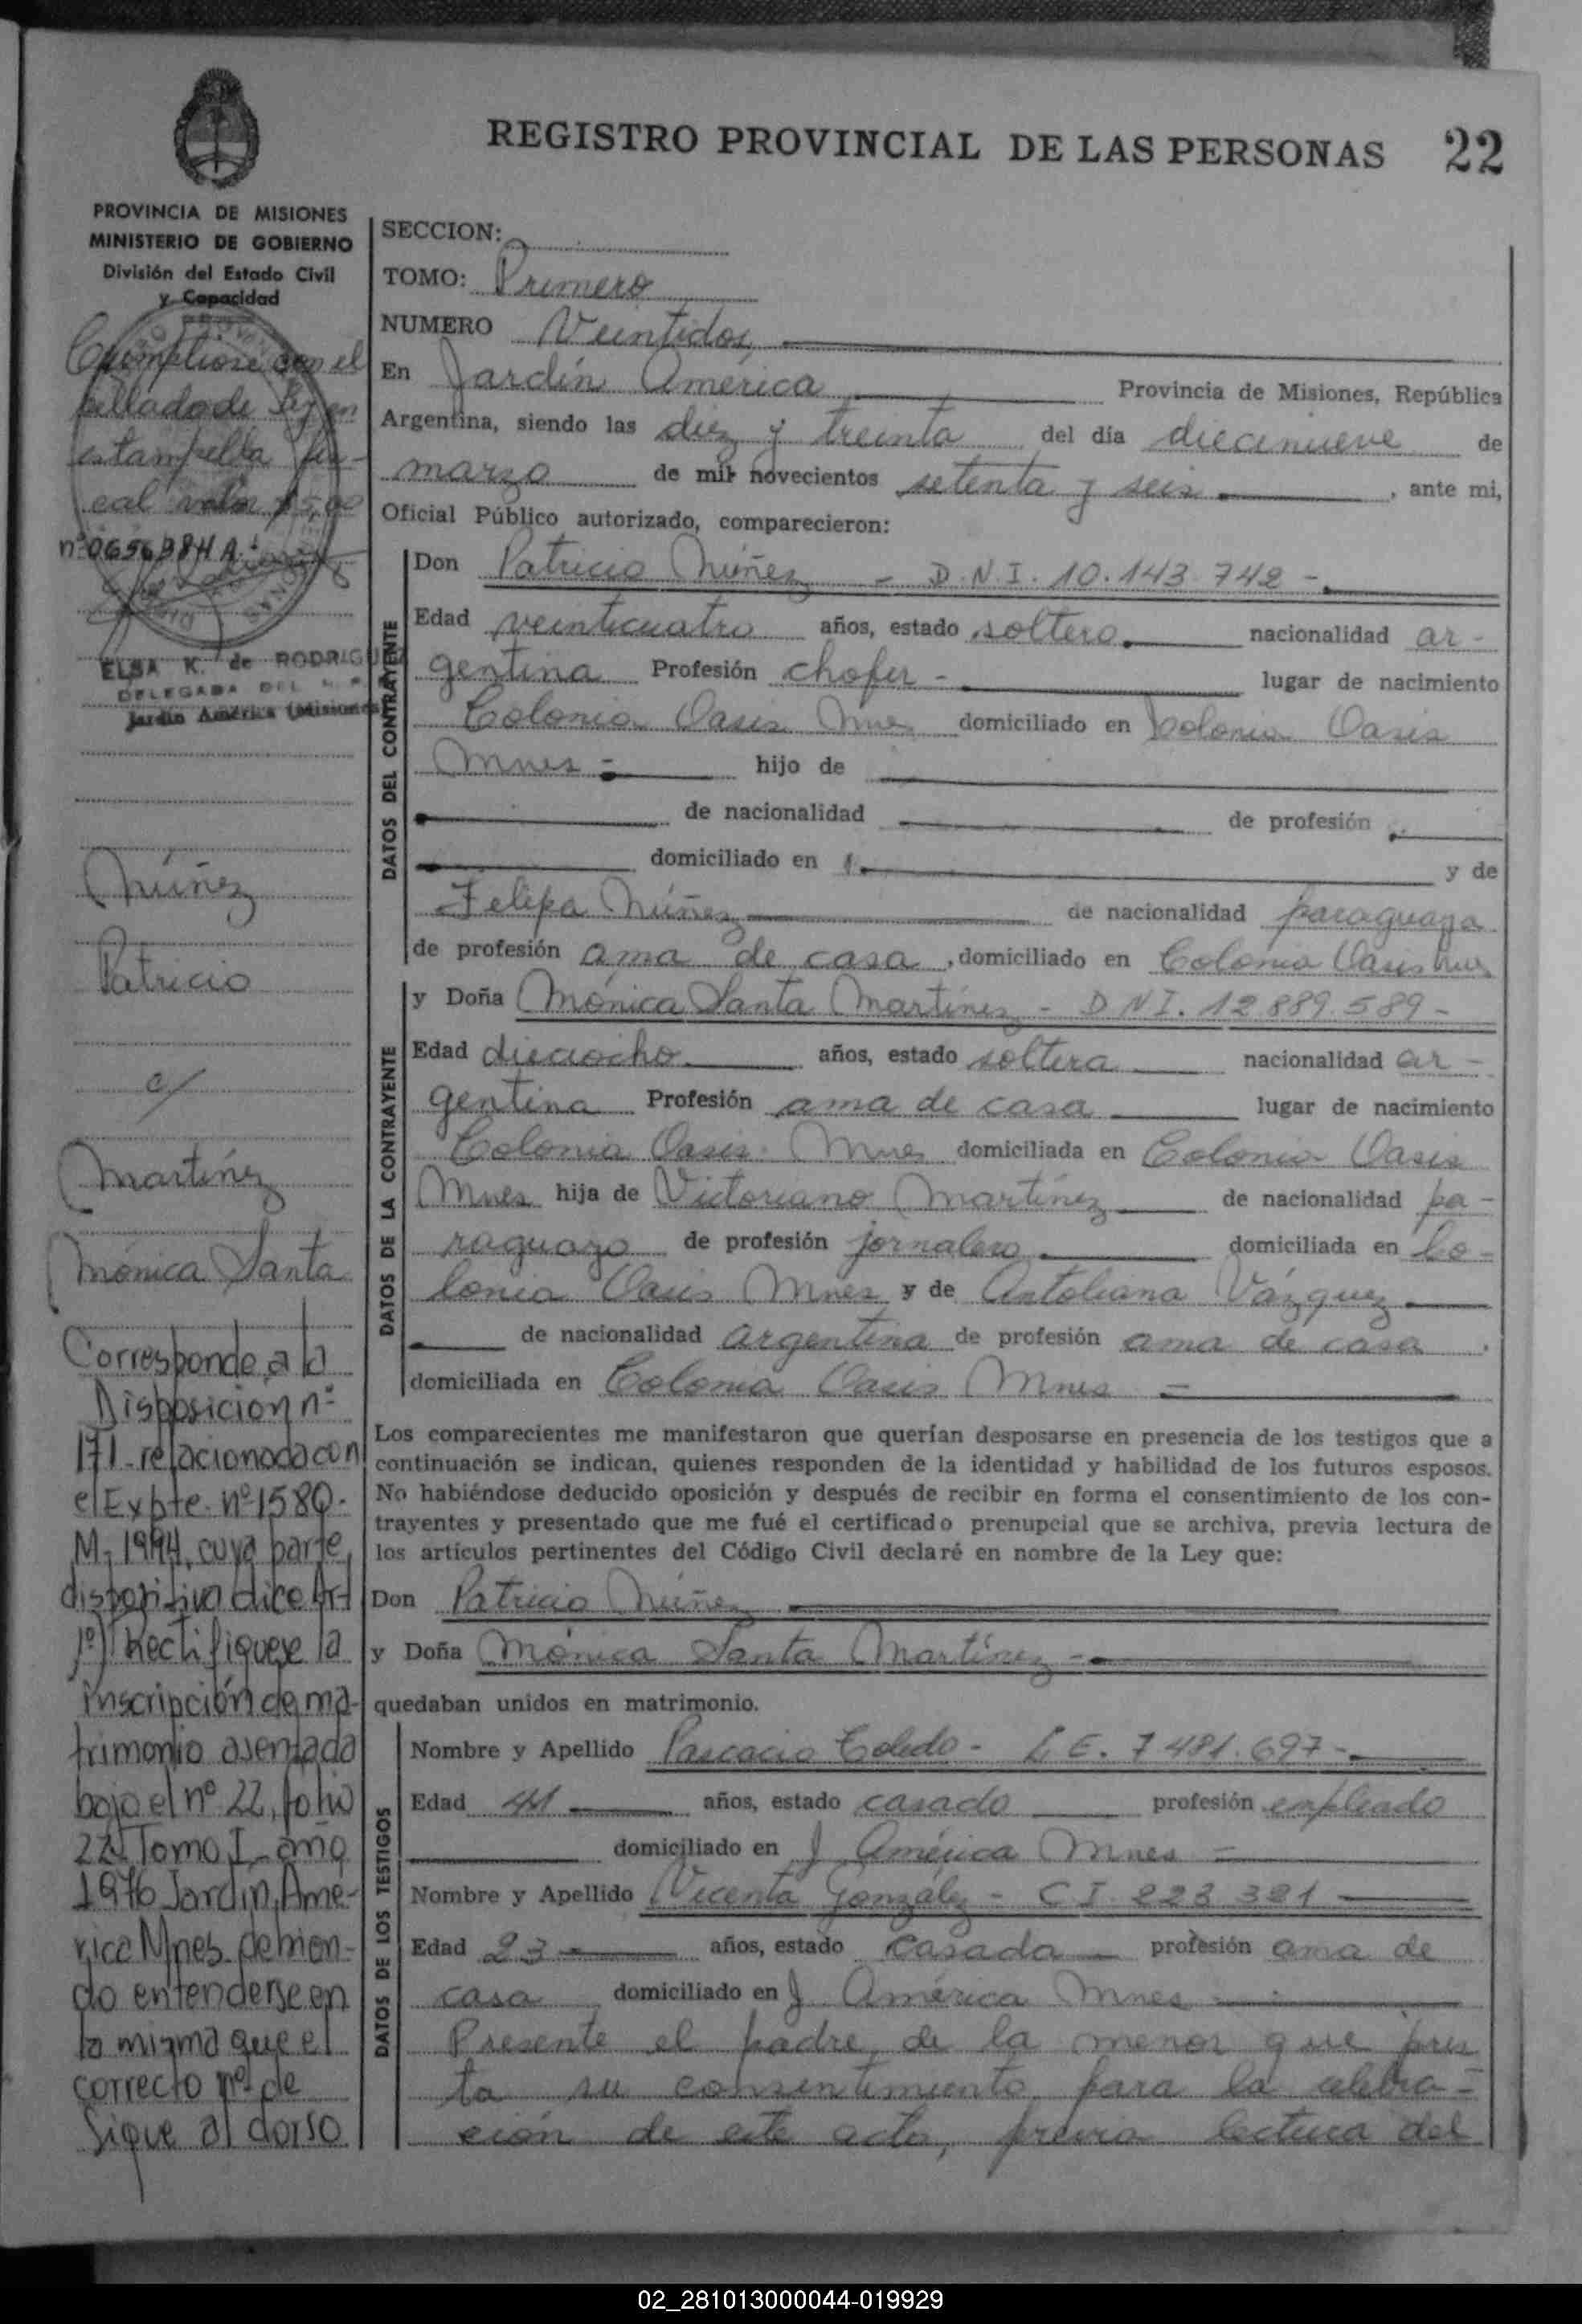 REGISTRO PROVINCIAL DE LAS PERSONAS 22
PROVINCIA DE MISIONES
MINISTERIO DE GOBIERNO
División del Estado Civil
y Capacidad
Cumpliose con el
sellado de ley en
estampilla fis-
cal valor $ 5,00
nº 0656384 A.
ELSA K. de RODRIGUEZ
DELEGADA DEL
Jardín América (Misiones)
Núñez
Patricio
c/
Martínez
Mónica Santa
Corresponde a la
Disposición nº
171 relacionada con
el Expte. nº 1580-
M-1994, cuya parte
dispositiva dice Art
1º) Rectifíquese la
inscripción de ma-
trimonio asentada
bajo el nº 22, folio
22 Tomo I año
1976 Jardín Amé-
rica Mnes. debien-
do entenderse en
la misma que el
correcto nº de
Sigue al dorso
SECCION:
TOMO: Primero
NUMERO Veintidos
En Jardín América Provincia de Misiones, República
Argentina, siendo las diez y treinta del día diecinueve de
marzo de mil novecientos setenta y seis, ante mi,
Oficial Público autorizado, comparecieron:
DATOS DEL CONTRAYENTE
Don Patricio Núñez - D.N.I. 10.143.742 -
Edad veinticuatro años, estado soltero nacionalidad ar-
gentina Profesión chofer - lugar de nacimiento
Colonia Oasis Mnes domiciliado en Colonia Oasis
Mnes - hijo de
de nacionalidad de profesión
domiciliado en y de
Felipa Núñez de nacionalidad paraguaya
de profesión ama de casa, domiciliado en Colonia Oasis Mnes
DATOS DE LA CONTRAYENTE
y Doña Mónica Santa Martínez - D.N.I. 12.889.589 -
Edad dieciocho años, estado soltera nacionalidad ar-
gentina Profesión ama de casa lugar de nacimiento
Colonia Oasis Mnes domiciliada en Colonia Oasis
Mnes hija de Victoriano Martínez de nacionalidad pa-
raguayo de profesión jornalero domiciliada en Co-
lonia Oasis Mnes y de Antoliana Vázquez
de nacionalidad argentina de profesión ama de casa.
domiciliada en Colonia Oasis Mnes -
Los comparecientes me manifestaron que querían desposarse en presencia de los testigos que a
continuación se indican, quienes responden de la identidad y habilidad de los futuros esposos.
No habiéndose deducido oposición y después de recibir en forma el consentimiento de los con-
trayentes y presentado que me fué el certificado prenupcial que se archiva, previa lectura de
los artículos pertinentes del Código Civil declaré en nombre de la Ley que:
Don Patricio Núñez
y Doña Mónica Santa Martínez -
quedaban unidos en matrimonio.
DATOS DE LOS TESTIGOS
Nombre y Apellido Pascacio Toledo - L.E. 7.481.697 -
Edad 41 años, estado casado profesión empleado
domiciliado en J. América Mnes -
Nombre y Apellido Vicenta González - C.I. 223.321
Edad 23 años, estado casada profesión ama de
casa domiciliado en J. América Mnes
Presente el padre de la menor que pres
ta su consentimiento para la celebra-
ción de este acto, previa lectura del
02_281013000044-019929